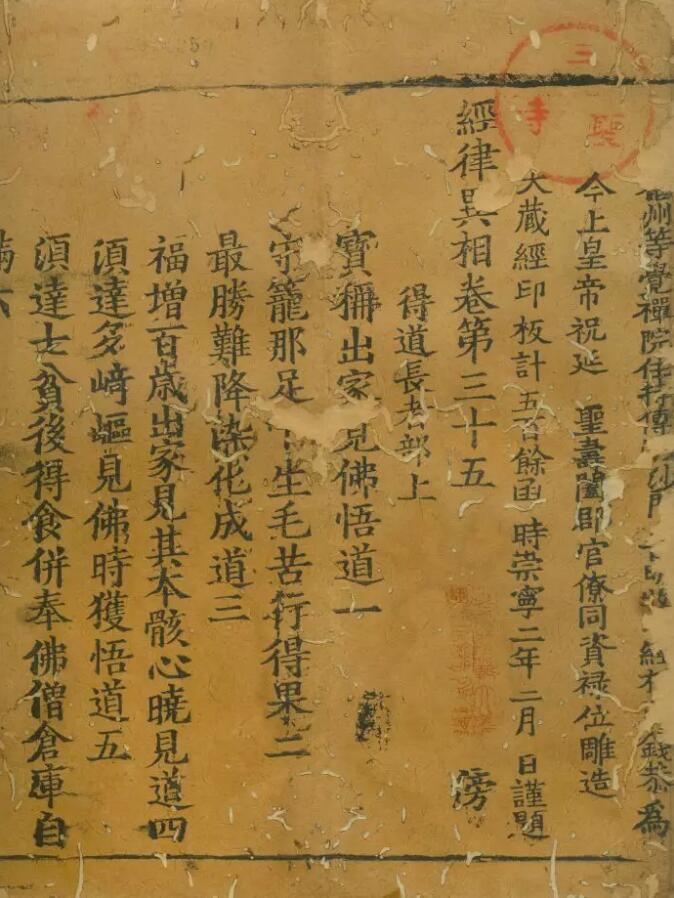 三聖寺
州等覺禪院住持傳沙門錢恭為
今上皇帝祝延　聖壽闔郡官僚同資祿位雕造
大藏經印板計五百餘函　時崇寧二年二月　日謹題
經律異相卷第三十五　傍
得道長者部上
寶稱出家見佛悟道一
守籠那足下生毛苦行得果二
最勝難降染化成道三
福增百歲出家見其本骸心曉見道四
須達多崎嶇見佛時獲悟道五
須達七貧後得食併奉佛僧倉庫自
滿六